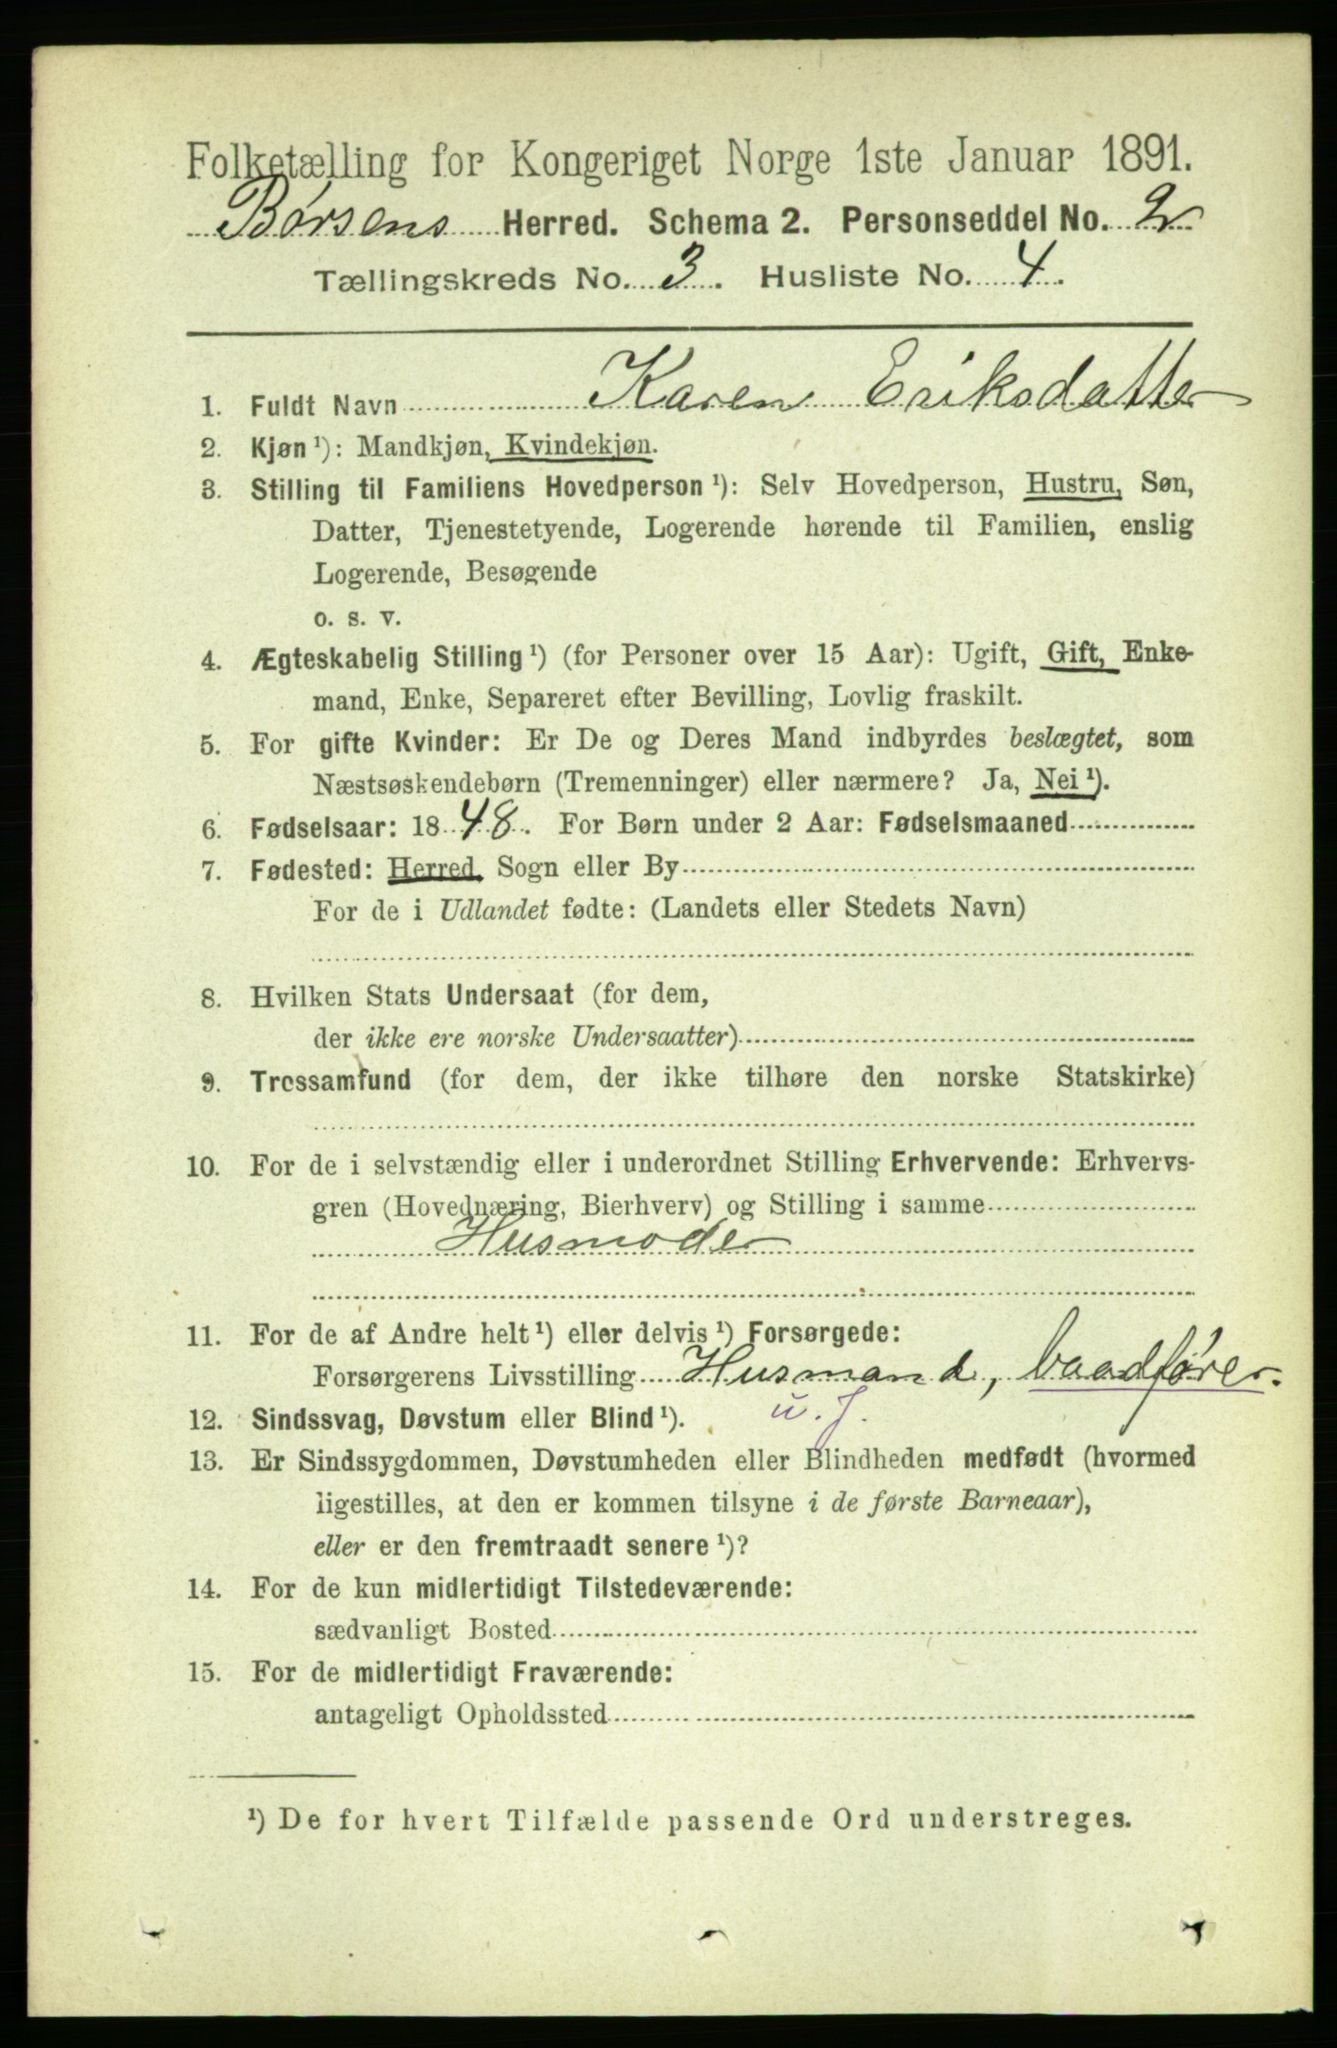 Folketælling for Kongeriget Norge 1ste Januar 1891.
Børsens Herred. Schema 2. Personseddel No. 2
Tællingskreds No. 3. Husliste No. 4.
1. Fuldt Navn Karen Eriksdatter
2. Kjøn ¹): Mandkjøn, Kvindekjøn.
3. Stilling til Familiens Hovedperson ¹): Selv Hovedperson, Hustru, Søn,
Datter, Tjenestetyende, Logerende hørende til Familien, enslig
Logerende, Besøgende
o. s. v.
4. Ægteskabelig Stilling ¹) (for Personer over 15 Aar): Ugift, Gift, Enke-
mand, Enke, Separeret efter Bevilling, Lovlig fraskilt.
5. For gifte Kvinder: Er De og Deres Mand indbyrdes beslægtet, som
Næstsøskendebørn (Tremenninger) eller nærmere? Ja, Nei ¹).
6. Fødselsaar: 1848. For Børn under 2 Aar: Fødselsmaaned
7. Fødested: Herred, Sogn eller By
For de i Udlandet fødte: (Landets eller Stedets Navn)
8. Hvilken Stats Undersaat (for dem,
der ikke ere norske Undersaatter)
9. Trossamfund (for dem, der ikke tilhøre den norske Statskirke)
10. For de i selvstændig eller i underordnet Stilling Erhvervende: Erhvervs-
gren (Hovednæring, Bierhverv) og Stilling i samme
Husmoder
11. For de af Andre helt ¹) eller delvis ¹) Forsørgede:
Forsørgerens Livsstilling Husmand, baadfører.
u. J.
12. Sindssvag, Døvstum eller Blind ¹).
13. Er Sindssygdommen, Døvstumheden eller Blindheden medfødt (hvormed
ligestilles, at den er kommen tilsyne i de første Barneaar),
eller er den fremtraadt senere ¹)?
14. For de kun midlertidigt Tilstedeværende:
sædvanligt Bosted
15. For de midlertidigt Fraværende:
antageligt Opholdssted
¹) De for hvert Tilfælde passende Ord understreges.